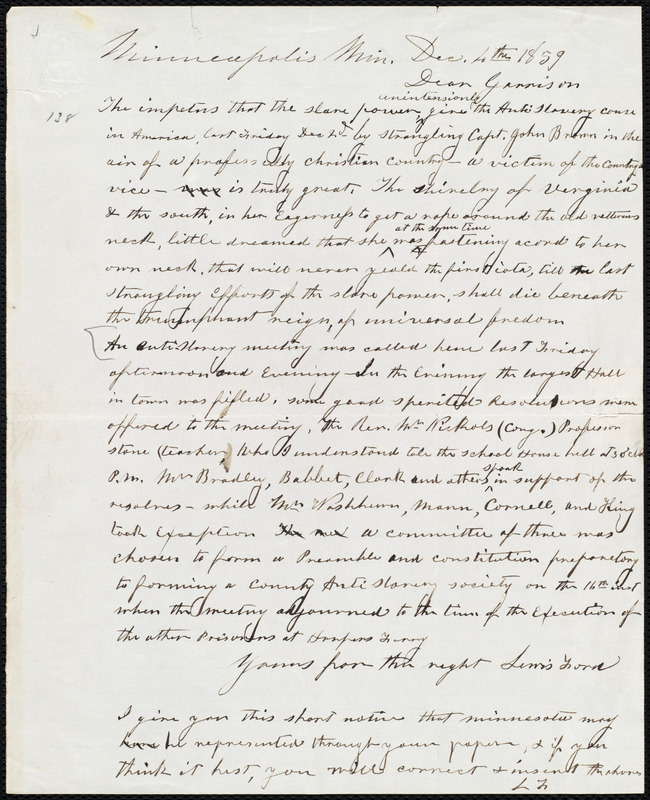 Minneapolis Min. Dec. 4th 1859
Dear Garrison
unintensionly
138
The impetus that the slave power, give the Anti Slavery cause
in America, last Friday Dec 2d by strangling Capt. John Brown in the
air of a professedly christian country – a victim of the Country's
vice – is truly great. The shivelry of Verginia
& the south, in her Eagerness to get a rope around the old vetterens
at the same time
neck, little dreamed that she was fastening a cord to her
own neck, that will never yeald the first iota, till the last
strangling Efforts of the slave power, shall die beneath
the triumphant reign, of universal freedom
An antislavery meeting was called here last Friday
afternoon and Evening – In the Evening the largest Hall
in town was filled. some good sperited Resolutions were
offered to the meeting. The Rev. Mr Nichols (Cong.) Professor
stone (teacher) Who I understand tole the school House bell at 3 o'clo
speak
P.m. Mr Bradley, Babbet, Clark and others in support of the
resolves – while Mrs Washburn, Mann, Cornell, and King
took Exception a committee of three was
chosen to form a Preamble and constitution preparetory
to forming a County Anti Slavery society on the 16th Inst
when the meeting adjourned to the time of the Execution of
the other Prisoners at Harpers Ferry
Yours for the right Lewis Ford
I give you this short notice that minnesota may
be represented through your paper, & if you
think it best, you will correct & insert the above
L F